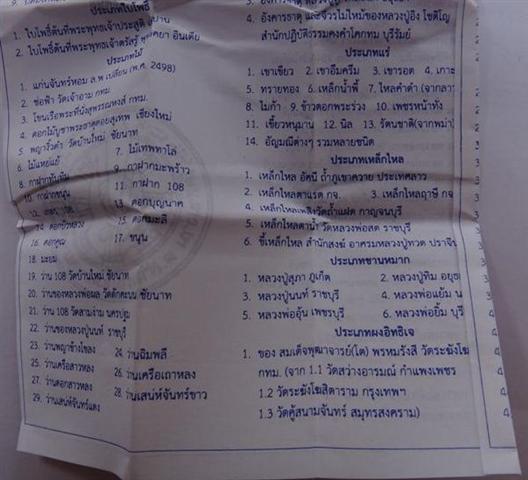 ประเภทใบโพธิ์
1. ใบโพธิ์ต้นที่พระพุทธเจ้าประสูติ
2. ใบโพธิ์ต้นที่พระพุทธเจ้าตรัสรู้ พุทธคยา อินเดีย
ประเภทไม้
1. แก่นจันทร์หอม ล.พ เปลี่ยน (พ.ศ. 2498)
2. ช่อฟ้า วัดเจ้าอาม กทม.
3. โขนเรือพระที่นั่งสุพรรณหงส์ กทม.
4. ดอกไม้บูชาพระธาตุดอยสุเทพ เชียงใหม่
5. พญางิ้วดำ วัดบ้านใหม่ ชัยนาท
6. ไม้แหย่แย้ 7. ไม้เทพทาโล่
8. กาฝากทับทิม 9. กาฝากมะพร้าว
10. กาฝากขนุน 11. กาฝาก 108
13. ดอกบุญนาค
14. ดอกบัวหลวง 15. ดอกมะลิ
16. ดอกคูณ 17. ขนุน
18. มะยม
19. ว่าน 108 วัดบ้านใหม่ ชัยนาท
20. ว่านของหลวงพ่อผล วัดดักคะนน ชัยนาท
21. ว่าน 108 วัดสามง่าม นครปฐม
22. ว่านของหลวงปู่นนท์ ราชบุรี
23. ว่านพญาช้างโขลง 24. ว่านฉิมพลี
25. ว่านเครือสาวหลง 26. ว่านเครือเถาหลง
27. ว่านดอกสาวหลง 28. ว่านเสน่ห์จันทร์ขาว
29. ว่านเสน่ห์จันทร์แดง
4. อังคารธาตุ และจีวรไม้ใหม้ของหลวงปู่อิ่ง โชติโญ
สำนักปฏิบัติธรรมคงคำโคกทม บุรีรัมย์
ประเภทแร่
1. เขาเขียว 2. เขาอึมครึม 3. เขารอด 4. เกาะ
5. ทรายทอง 6. เหล็กน้ำพี้ 7. ไหลคำดำ (จากลา
8. ไมก้า 9. ข้าวตอกพระร่วง 10. เพชรหน้าทั่ง
11. เขี้ยวหนุมาน 12. นิล 13. รัตนชาติ(จากพม่า)
14. อัญมณีต่างๆ รวมหลายชนิด
ประเภทเหล็กไหล
1. เหล็กไหล อัคนี ถ้ำภูเขาควาย ประเทศลาว
2. เหล็กไหลตาแรด กจ. 3. เหล็กไหลฤาษี กจ
4. เหล็กไหลเพลิงวัดถ้ำแฝด กาญจนบุรี
5. เหล็กไหลตาน้ำ วัดหลวงพ่อสด ราชบุรี
6. ขี้เหล็กไหล สำนักสงฆ์ อาศรมหลวงปู่ทวด ปราจีน
ประเภทชานหมาก
1. หลวงปู่สุภา ภูเก็ต 2. หลวงปู่ทิม อยุธย
3. หลวงปู่นนท์ ราชบุรี 4. หลวงพ่อแย้ม น
5. หลวงพ่ออุ้น เพชรบุรี 6. หลวงพ่อยิ้ม บุรี
ประเภทผงอิทธิเจ
1. ของ สมเด็จพุฒาจารย์(โต) พรหมรังสี วัดระฆังโฆ
กทม. (จาก 1.1 วัดสว่างอารมณ์ กำแพงเพชร
1.2 วัดระฆังโฆสิตาราม กรุงเทพฯ
1.3 วัดคู้สนามจันทร์ สมุทรสงคราม)